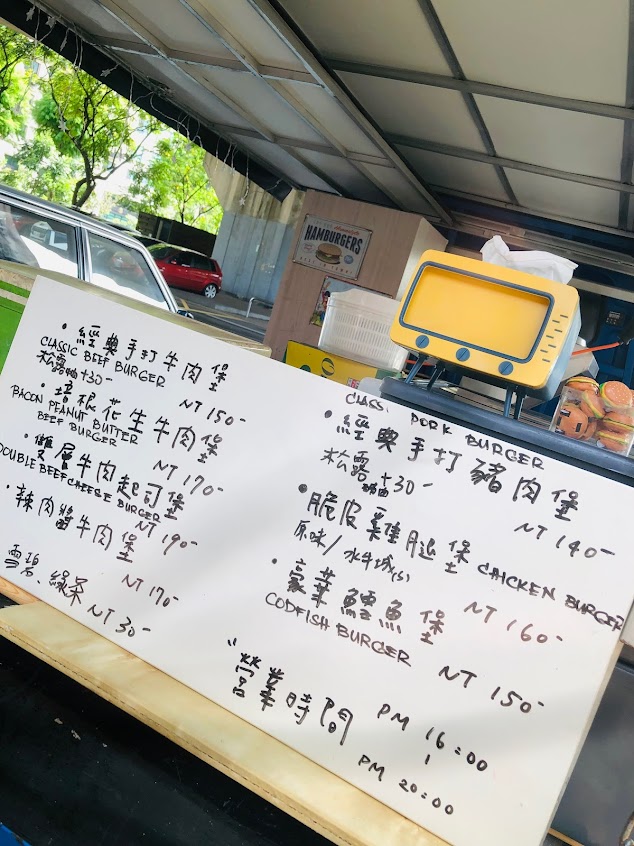 HAMBURGERS
・經典手打牛肉堡
CLASSIC BEEF BURGER
松露+30-
NT 150-
・培根花生牛肉堡
BACON PEANUT BUTTER
BEEF BURGER
NT 170-
・雙層牛肉起司堡
DOUBLE BEEF CHEESE BURGER
NT 190-
・辣肉醬牛肉堡
NT 170-
雪碧、綠茶 NT 30-
CLASSI PORK BURGER
・經典手打豬肉堡
松露+30-
NT 140-
・脆皮雞腿堡 CHICKEN BURGER
原味/水牛城(s)
NT 160-
・豪華鱈魚堡
CODFISH BURGER
NT 150-
"營業時間 PM 16:00
|
PM 20:00